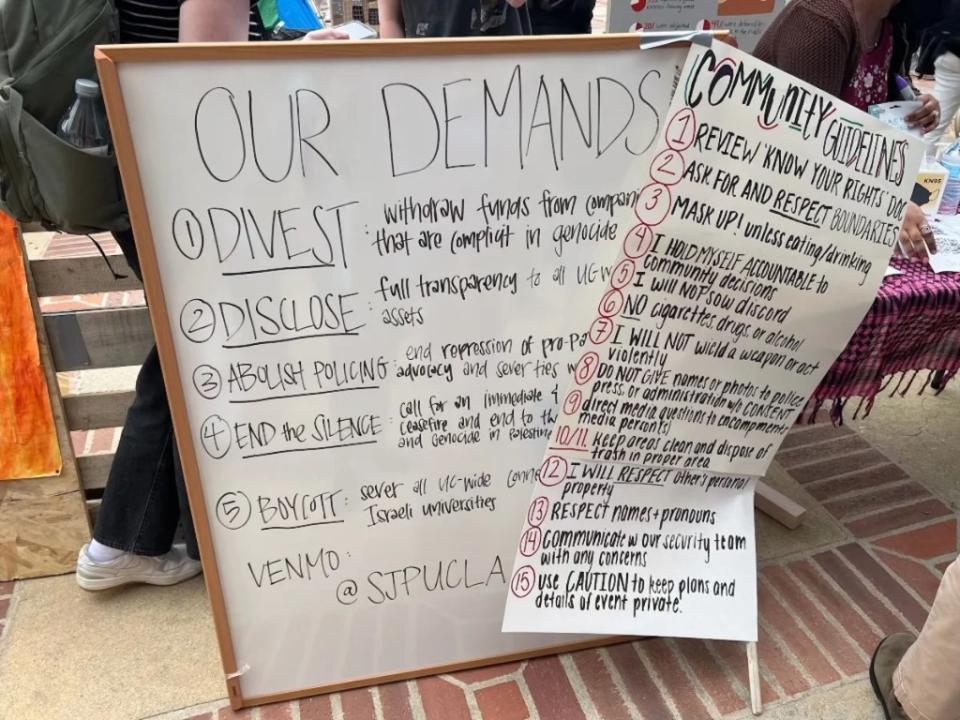 OUR DEMANDS
① DIVEST : withdraw funds from compani
that are complicit in genocide
② DISCLOSE : full transparency to all UC-w
assets
③ ABOLISH POLICING : end repression of pro-Pa
advocacy and sever ties w
④ END the SILENCE : call for an immediate &
ceasefire and end to th
and genocide in Palestine
⑤ BOYCOTT : sever all UC-wide conne
Israeli universities
VENMO:
@SJPUCLA
COMMUNITY GUIDELINES
① REVIEW 'KNOW YOUR RIGHTS' DOC
② ASK FOR AND RESPECT BOUNDARIES
③ MASK UP! unless eating/drinking
④ I HOLD MYSELF ACCOUNTABLE to
community decisions
⑤ I will NOT sow discord
⑥ NO cigarettes, drugs, or alcohol
⑦ I WILL NOT wield a weapon or act
violently
⑧ DO NOT GIVE names or photos to police
press, or administration w/o CONSENT
⑨ direct media questions to encampment
media person(s)
10/11 keep areas clean and dispose of
trash in proper area
⑫ I WILL RESPECT other's personal
property
⑬ RESPECT names + pronouns
⑭ communicate w our security team
with any concerns
⑮ use CAUTION to keep plans and
details of event private.
KN95